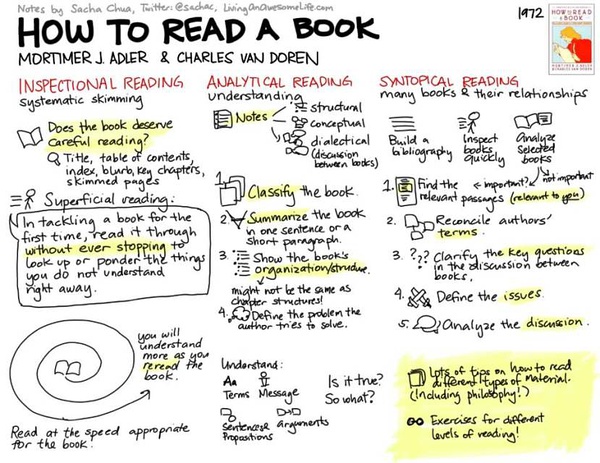 Notes by Sacha Chua, Twitter: @sachac, LivingAnAwesomeLife.com
HOW TO READ A BOOK
MORTIMER J. ADLER & CHARLES VAN DOREN
1972
HOW TO READ
A BOOK
INSPECTIONAL READING
systematic skimming
Does the book deserve
careful reading?
Title, table of contents,
index, blurb, key chapters,
skimmed pages
Superficial reading:
In tackling a book for the
first time, read it through
without ever stopping to
look up or ponder the things
you do not understand
right away.
you will
understand
more as you
reread the
book.
Read at the speed appropriate
for the book!
ANALYTICAL READING
understanding
Notes
structural
conceptual
dialectical
(discussion
between books)
1. Classify the book.
2. Summarize the book
in one sentence or a
short paragraph.
3. Show the book's
organization/structure.
might not be the same as
chapter structures!
4. Define the problem the
author tries to solve.
Understand:
Aa
Terms Message
Sentences &
Propositions
arguments
Is it true?
So what?
SYNTOPICAL READING
many books & their relationships
Build a
bibliography
Inspect
books
quickly
Analyze
Selected
books
1. Find the
relevant passages
important?
not important
(relevant to you)
2. Reconcile authors'
terms.
3. ??? Clarify the key questions
in the discussion between
books.
4. Define the issues.
5. Analyze the discussion.
Lots of tips on how to read
different types of material.
(Including philosophy!)
Exercises for different
levels of reading!